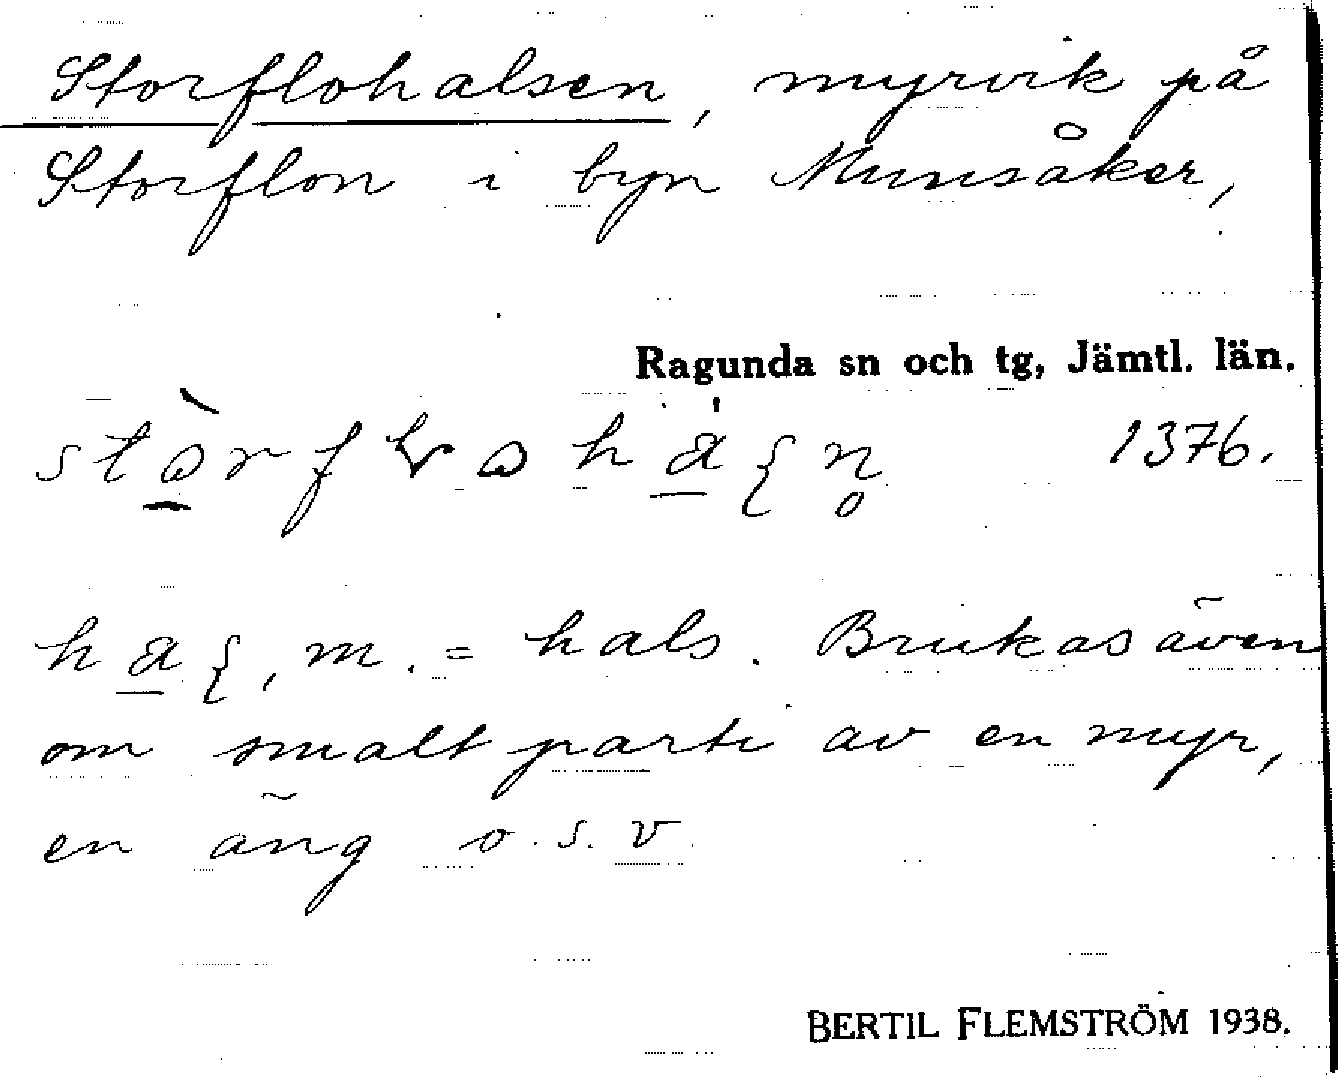 Storflohalsen, myrvik på
Storflon i byn Munsåker,
Ragunda sn och tg, Jämtl. län.
1376.
m. = hals. Brukas även
om smalt parti av en myr,
en äng o.s.v.
BERTIL FLEMSTRÖM 1938.